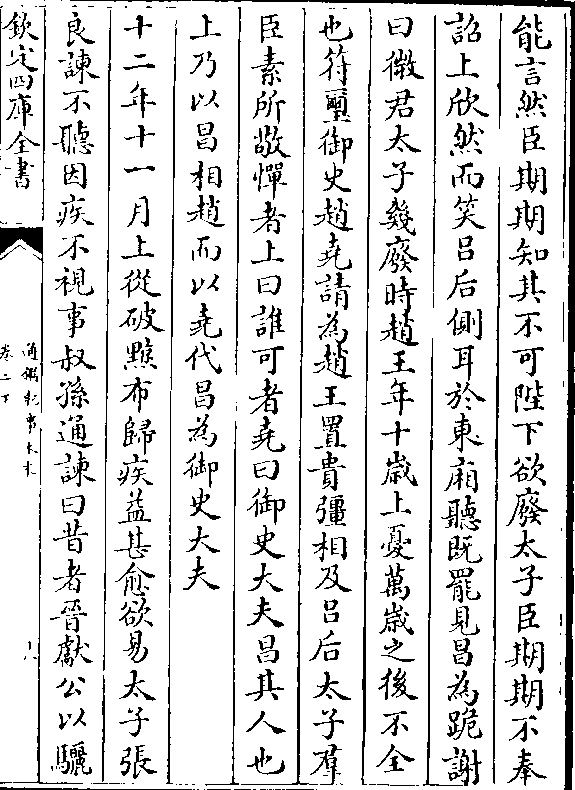 能言然臣期期知其不可陛下欲廢太子臣期期不奉
詔上欣然而笑吕后側耳於東廂聽既罷見昌為跪謝
曰微君太子幾廢時趙王年十歲上憂萬歲之後不全
也符璽御史趙堯請為趙王置貴彊相及吕后太子羣
臣素所敬憚者上曰誰可者堯曰御史大夫昌其人也
上乃以昌相趙而以堯代昌為御史大夫
十二年十一月上從破黥布歸疾益甚愈欲易太子張
良諫不聽因疾不視事叔孫通諫曰昔者晉獻公以驪
欽定四庫全書
通鑑紀事本末
卷二下
十八